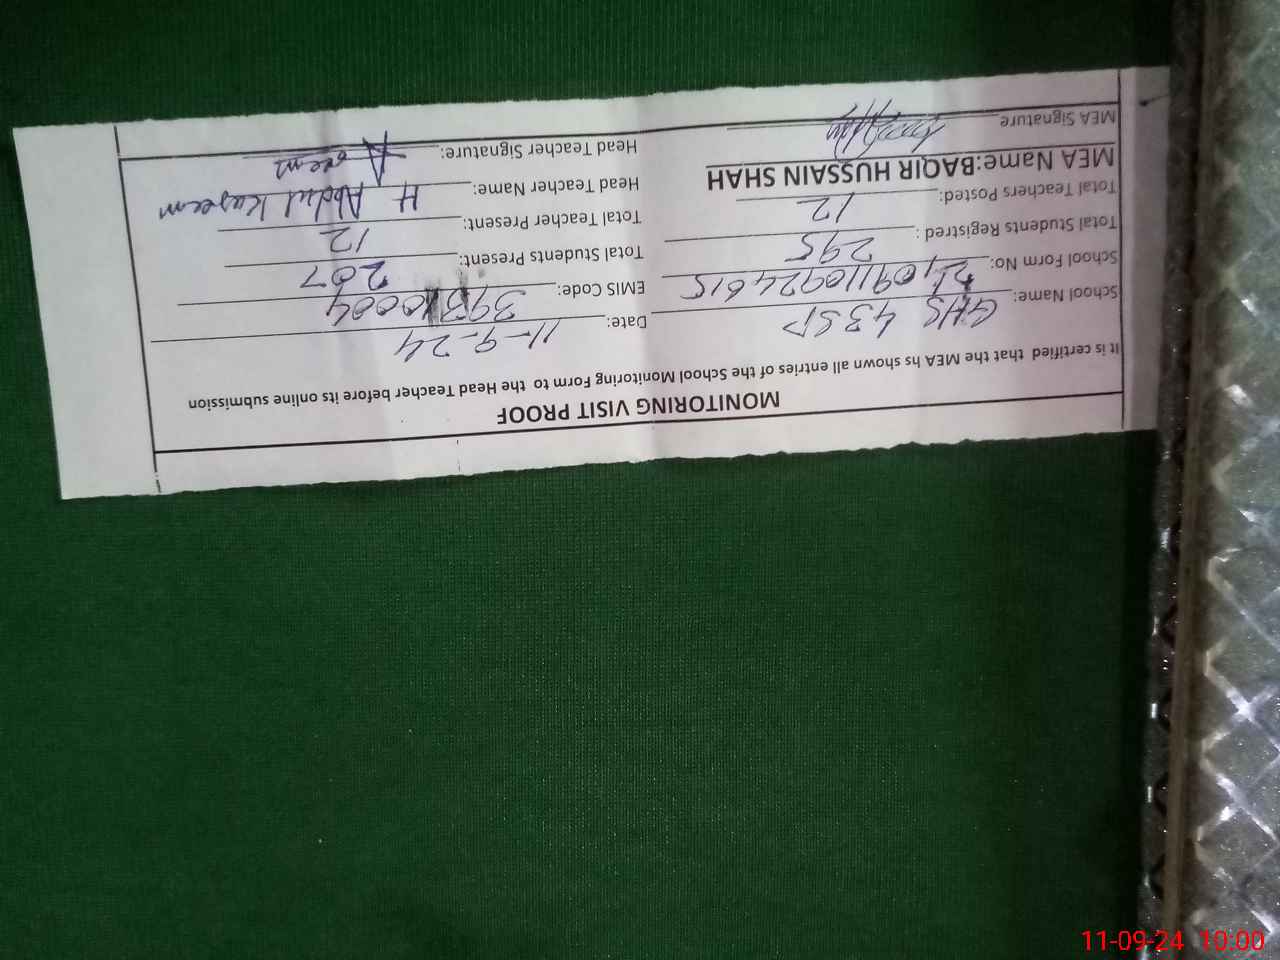 MONITORING VISIT PROOF
It is certified that the MEA hs shown all entries of the School Monitoring Form to the Head Teacher before its online submission
School Name: GHS 43 SP Date: 11-9-24
School Form No: 2409110924615 EMIS Code: 39310004
Total Students Registred : 295 Total Students Present: 207
Total Teachers Posted: 12 Total Teacher Present: 12
MEA Name:BAQIR HUSSAIN SHAH Head Teacher Name: H Abdul Kareem
MEA Signature Head Teacher Signature:
11-09-24 10:00